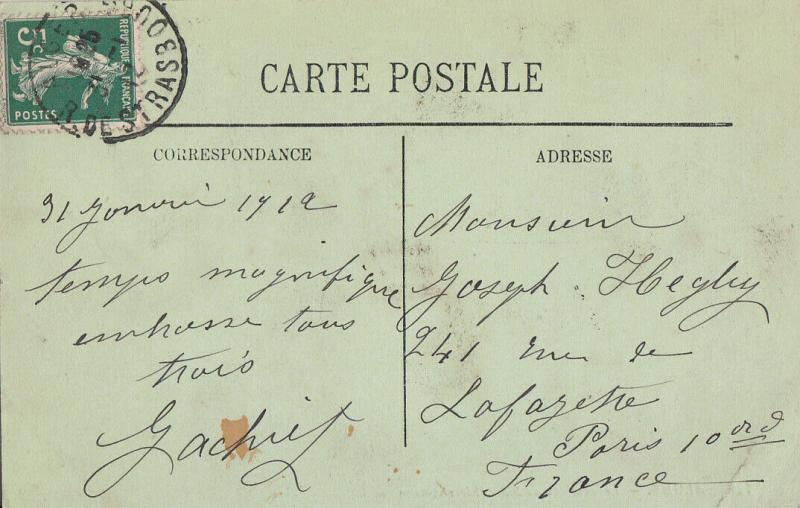 5c
REPUBLIQUE FRANCAISE
POSTES
DE STRASBOURG
CARTE POSTALE
CORRESPONDANCE
31 Janvier 1912
temps magnifique
embrasse tous
trois
ADRESSE
Monsieur
Joseph Hegly
241 rue de
Lafayette
Paris 10 ord
France